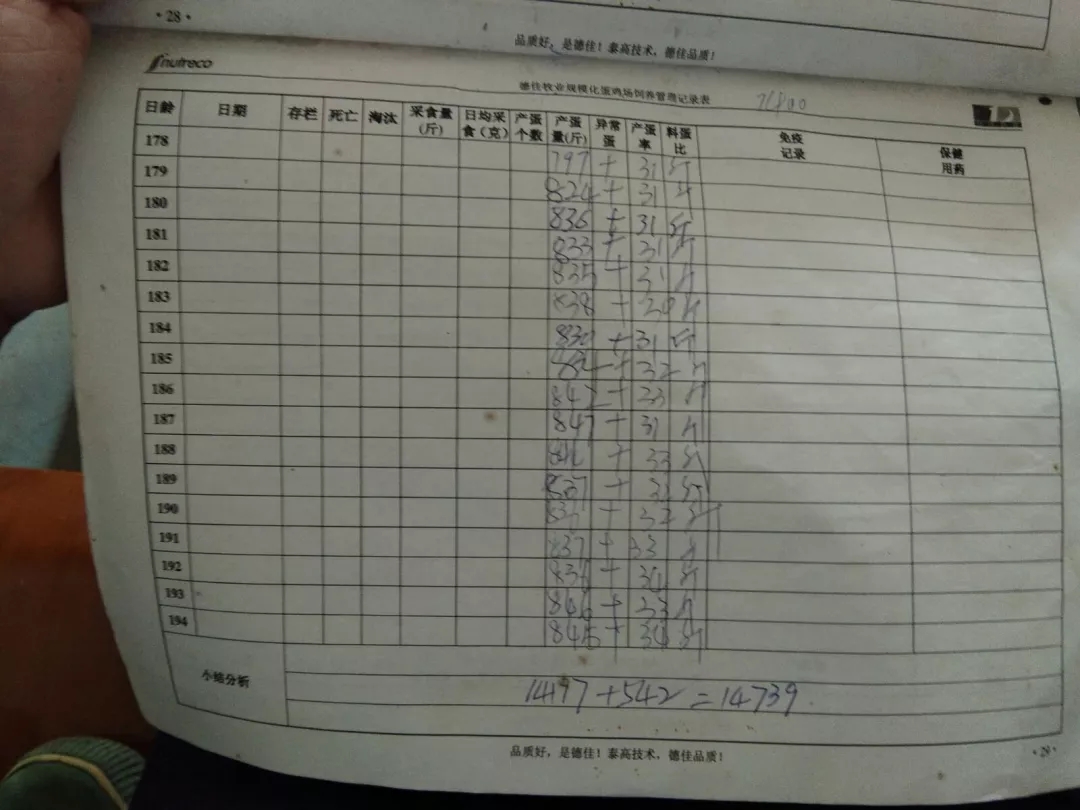 ·28·
品质好，是德佳！泰高技术，德佳品质！
nutreco
德佳牧业规模化蛋鸡场饲养管理记录表
日龄 日期 存栏 死亡 淘汰 采食量(斤) 日均采食（克） 产蛋个数 产蛋量(斤) 异常蛋 产蛋率 料蛋比 免疫记录 保健用药
178 797 + 31 斤
179 824 + 31 斤
180 836 + 31 斤
181 833 + 31 斤
182 835 + 31 斤
183 838 + 斤
184 830 + 31 斤
185 + 32 斤
186 847 + 斤
187 847 + 31 斤
188 + 33 斤
189 837 + 斤
190 + 32 斤
191 837 + 33 斤
192 836 + 34 斤
193 846 + 33 斤
194 845 + 34 斤
小结分析
14197+542=14739
品质好，是德佳！泰高技术，德佳品质！
·29·